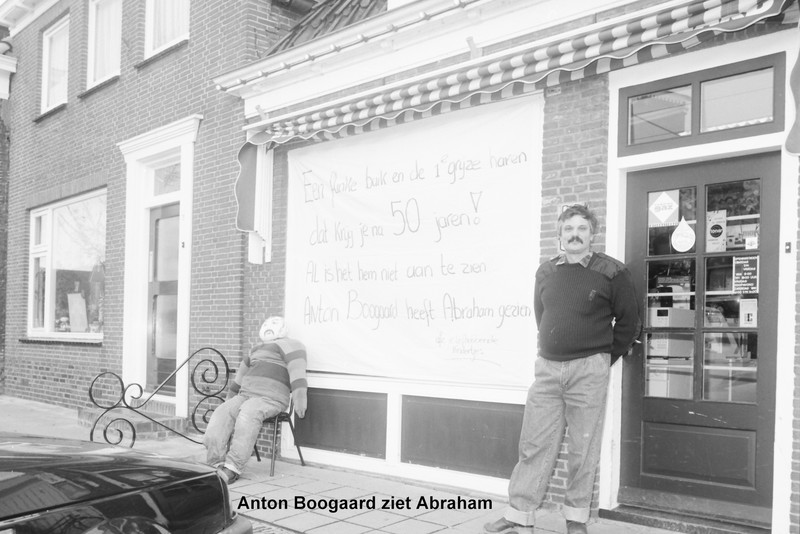 Een flinke buik en de 1e gryze haren
dat kryg je na 50 jaren!
Al is het hem niet aan te zien
Anton Boogaard heeft Abraham gezien
Anton Boogaard ziet Abraham